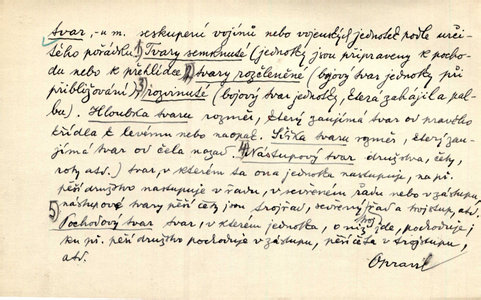 tvar, -u m. seskupení vojínů nebo vojenských jednotek podle urči-
tého pořádku 1) Tvary semknuté (jednotky jsou připraveny k pocho-
du nebo k přehlídce 2) tvary rozčleněné (bojový tvar jednotky při
přibližování) 3) rozvinuté (bojový tvar jednotky, která zahájila pal-
bu). Hloubka tvaru rozměr, který zaujímá tvar od pravého
křídla k levému nebo naopak. Šířka tvaru rozměr, který zau-
jímá tvar od čela nazad. 4) Nástupový tvar družstva, čety,
roty atd.) tvar, v kterém ta ona jednotka nastupuje, na př.
pěší družstvo nastupuje v řadu, v sevřeném řadu nebo v zástupu,
nástupové tvary pěší čety jsou trojřad, sevřený řad a trojstup, atd.
5) Pochodový tvar tvar, v kterém jednotka, o niž jde, pochoduje,
na př. pěší družstvo pochoduje v zástupu, pěší četa v trojstupu,
atd.